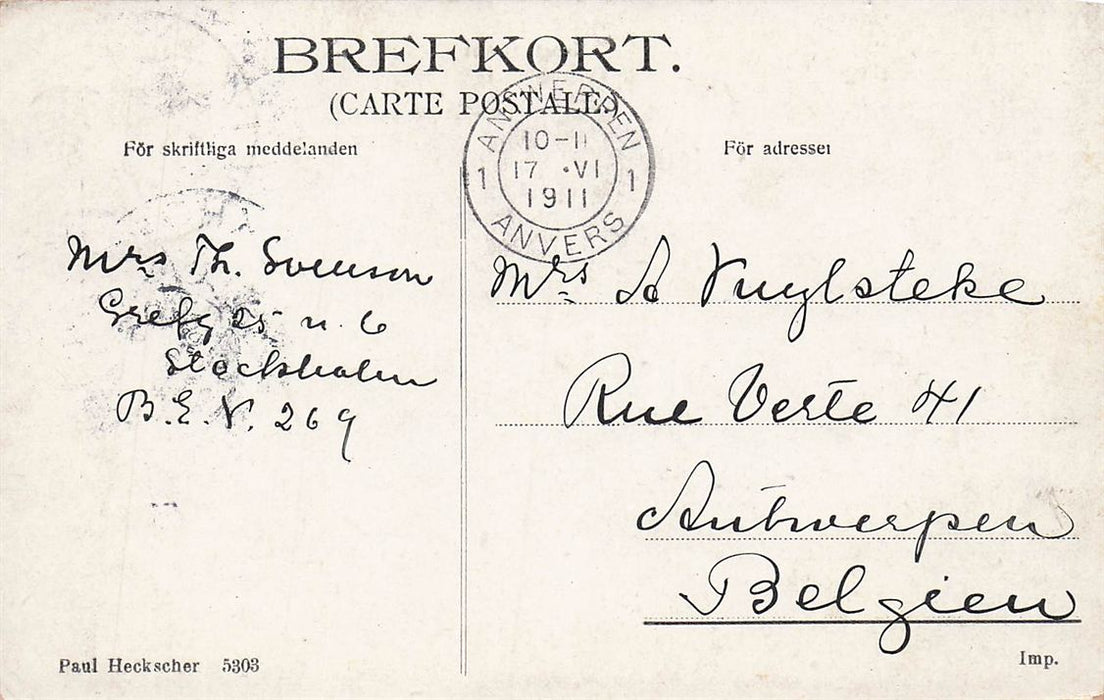 BREFKORT.
(CARTE POSTALE)
För skriftliga meddelanden
För adressen
ANTWERPEN
1 10-11 1
17 VI
1911
ANVERS
Mrs Th. Svenson
Grefg 25 n. 6
Stockholm
B.E.V. 269
Mrs A Vuylsteke
Rue Verte 41
Antwerpen
Belgien
Paul Heckscher 5303
Imp.